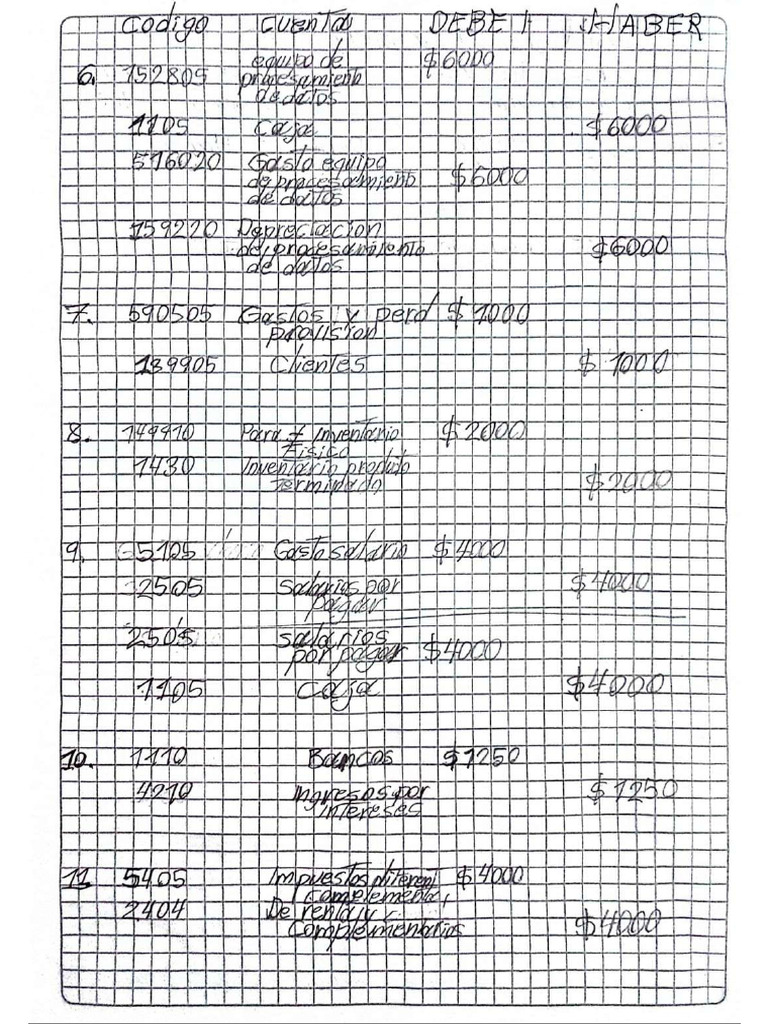 Codigo Cuentas DEBE HABER
equipo de $6000
6. 152805 procesamiento
de datos
1105 Caja $6000
516020 Gasto equipo
de procesamiento $6000
de datos
159220 Depreciacion
de procesamiento $6000
de datos
7. 590505 Gastos y perd $1000
provision
139905 Clientes $1000
8. 149910 Para + Inventario $2000
Fisico
1430 Inventario produto
terminado $2000
9. 5105 Gasto salario $4000
2505 Salarios por $4000
pagar
2505 salarios
por pagar $4000
1105 Caja $4000
10. 1110 Bancos $1250
4210 Ingresos por $1250
intereses
11 5405 Impuestos diferent $4000
complementa,
2404 De renta y
Complementarios $4000